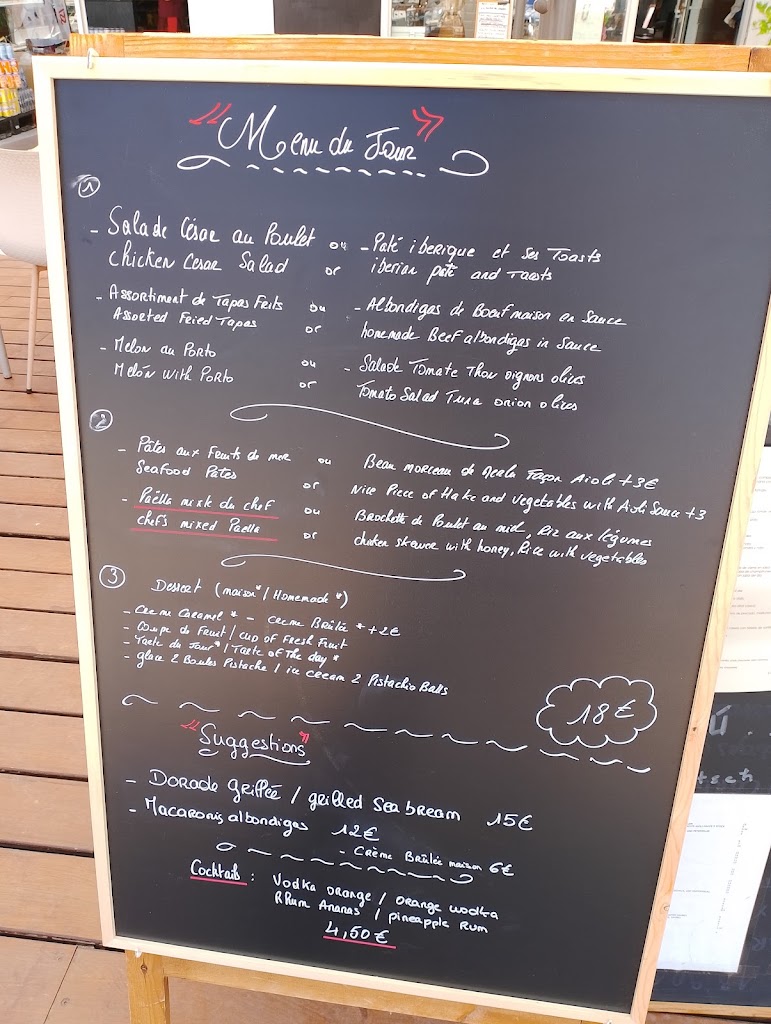 " Menu du Jour "
1
- Salade César au Poulet ou - Paté iberique et ses Toasts
Chicken Cesar Salad or iberian paté and Toasts
- Assortiment de Tapas Frits ou - Albondigas de Boeuf maison en sauce
Assorted Fried Tapas or homemade Beef albondigas in sauce
- Melon au Porto ou - Salade Tomate Thon oignons olives
Melón with Porto or Tomato Salad Tuna onion olives
2
- Pâtes aux Fruits de mer ou Beau morceau de Merlu Façon Aioli +3€
Seafood Pates or Nice Piece of Hake and vegetables with Aioli Sauce +3
- Paëlla mixte du chef ou Brochette de Poulet au miel, Riz aux légumes
chefs mixed Paella or chicken skewer with honey, Rice with vegetables
3
Dessert (maison* / Homemade *)
- Creme Caramel * - creme Brûlée * +2€
- Coupe de Fruit / cup of Fresh Fruit
- Tarte du Jour* / Tarte of The day *
- glace 2 Boules Pistache / ice cream 2 Pistachio Balls
18€
" Suggestions "
- Dorade grillée / grilled Sea bream 15€
- Macaronis albondigas 12€
- Crème Brûlée maison 6€
Cocktails : Vodka orange / orange wodka
RHum Ananas / pineapple Rum
4,50€